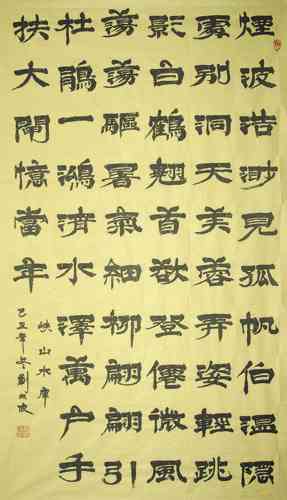 煙波浩渺見孤帆伯温隱
處别洞天芙蓉弄姿輕跳
影白鶴翹首欲登僊微風
蕩蕩驅暑氣細柳翩翩引
杜鵑一鴻濟水澤萬户手
扶大閘憶當年
峽山水庫
己丑年冬劉